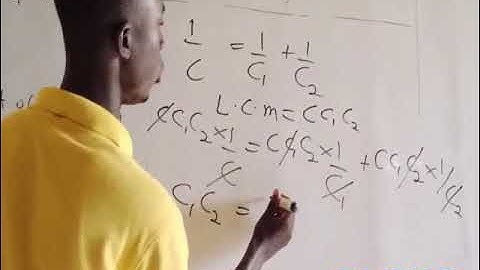 1/C = 1/C₁ + 1/C₂
L.C.m = C C₁ C₂
C C₁ C₂ × 1/C = C C₁ C₂ × 1/C₁ + C C₁ C₂ × 1/C₂
C₁ C₂ =